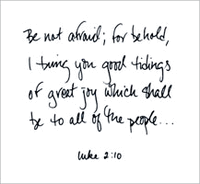 Be not afraid; for behold,
I bring you good tidings
of great joy which shall
be to all of the people...
Luke 2:10